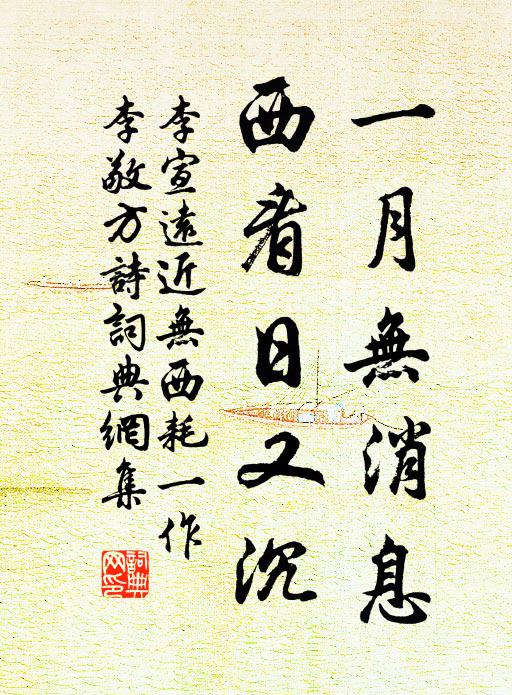 一月無消息
西看日又沉
李宣遠近無西耗一作
李敬方詩詞典網集
詞典網印